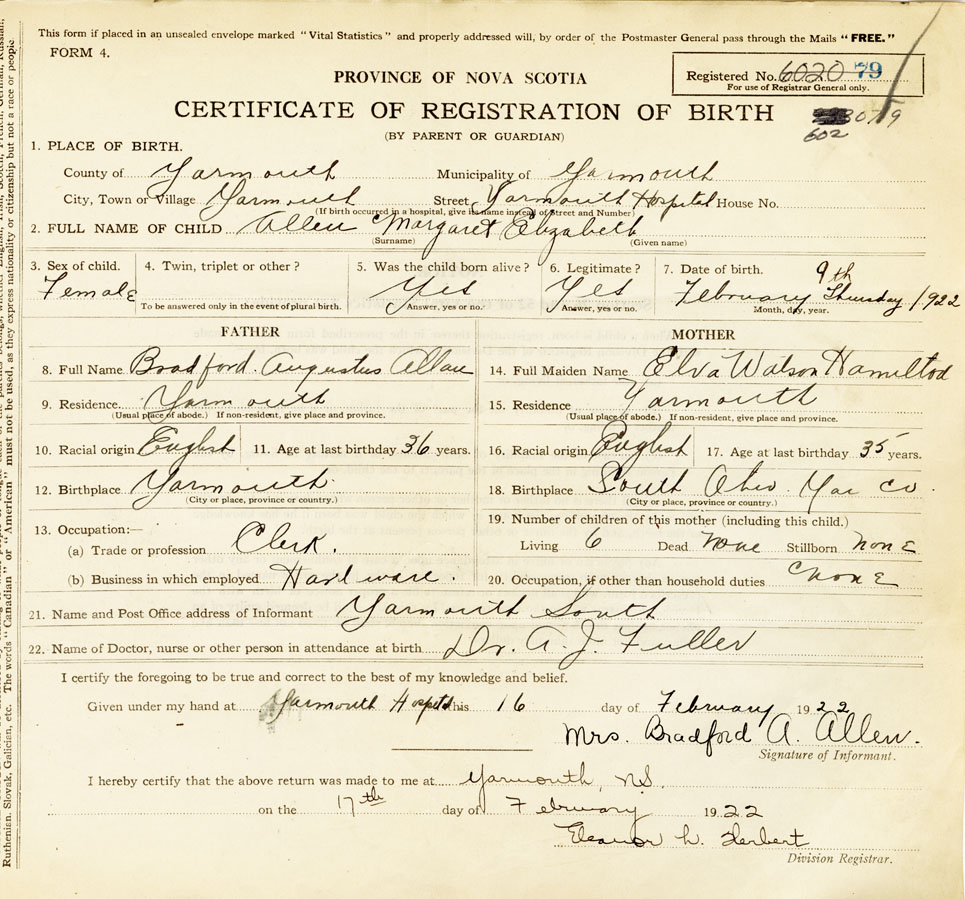 This form if placed in an unsealed envelope marked "Vital Statistics" and properly addressed will, by order of the Postmaster General pass through the Mails "FREE."
FORM 4.
PROVINCE OF NOVA SCOTIA
Registered No. 6020 79
For use of Registrar General only.
CERTIFICATE OF REGISTRATION OF BIRTH
602
(BY PARENT OR GUARDIAN)
1. PLACE OF BIRTH.
County of Yarmouth Municipality of Yarmouth
City, Town or Village Yarmouth Street Yarmouth Hospital House No.
(If birth occurred in a hospital, give its name instead of Street and Number)
2. FULL NAME OF CHILD Allen Margaret Elizabeth
(Surname) (Given name)
3. Sex of child. Female
4. Twin, triplet or other?
To be answered only in the event of plural birth.
5. Was the child born alive? Yes
Answer, yes or no.
6. Legitimate? Yes
Answer, yes or no.
7. Date of birth. 9th
February Thursday 1922
Month, day, year.
FATHER
8. Full Name Bradford Augustus Allan
9. Residence Yarmouth
(Usual place of abode.) If non-resident, give place and province.
10. Racial origin English 11. Age at last birthday 36 years.
12. Birthplace Yarmouth
(City or place, province or country.)
13. Occupation:—
(a) Trade or profession Clerk.
(b) Business in which employed Hardware.
MOTHER
14. Full Maiden Name Elva Watson Hamilton
15. Residence Yarmouth
(Usual place of abode.) If non-resident, give place and province.
16. Racial origin English 17. Age at last birthday 35 years.
18. Birthplace South Ohio Yar Co.
(City or place, province or country.)
19. Number of children of this mother (including this child.)
Living 6 Dead None Stillborn None
20. Occupation, if other than household duties None
21. Name and Post Office address of Informant Yarmouth South
22. Name of Doctor, nurse or other person in attendance at birth Dr. A. J. Fuller
I certify the foregoing to be true and correct to the best of my knowledge and belief.
Given under my hand at Yarmouth Hospital this 16 day of February 1922
Mrs. Bradford A. Allen.
Signature of Informant.
I hereby certify that the above return was made to me at Yarmouth, N.S.
on the 17th day of February 1922
Eleanor L. Herbert
Division Registrar.
Ruthenian, Slovak, Galician, etc. The words "Canadian" or "American" must not be used, as they express nationality or citizenship but not a race or people